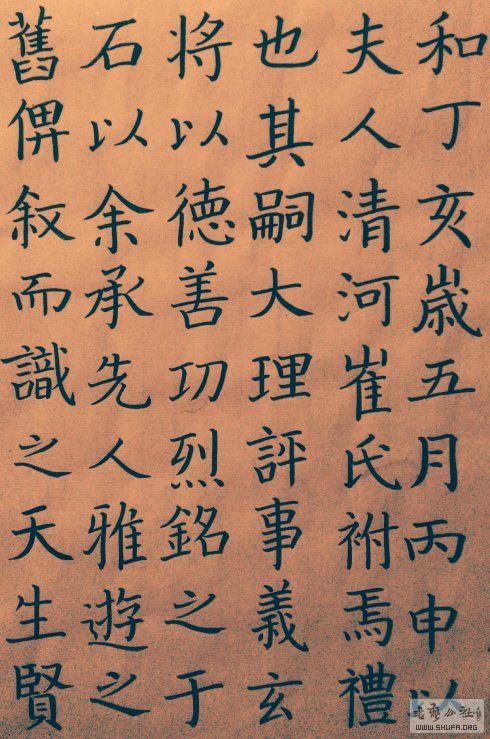 和丁亥歲五月丙申以
夫人清河崔氏祔焉禮
也其嗣大理評事義玄
將以德善功烈銘之于
石以余承先人雅遊之
舊俾叙而識之天生賢
WWW.SHUFA.ORG